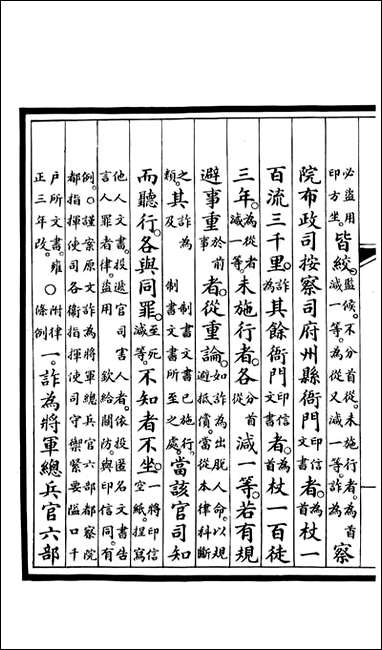 必盜用印方坐。皆絞。監候。不分首從。未施行者。為首減一等。為從又減一等。詐為察
院布政司按察司府州縣衙門印信文書者。為首杖一
百流三千里。詐為其餘衙門印信文書者。為首杖一百徒
三年。為從者減一等。未施行者。各分首從減一等。若有規
避事重於前事者。從重論。如詐為出脫人命。以規避抵償。當從本律科斷
之類。其詐為及制書文書已施行。制書文書所至之處。當該官司知
而聽行。各與同罪。至死減等。不知者不坐。一將印信空紙。捏寫
他人文書。投遞官司害人者。依投匿名文書告言人罪者律。盜用欽給關防。與印信同。有
例。○謹案原文詐為將軍總兵官六部都察院都指揮使司各衛指揮使司守禦緊要隘口千
戶所文書。雍正三年改。○附律條例一。詐為將軍總兵官六部